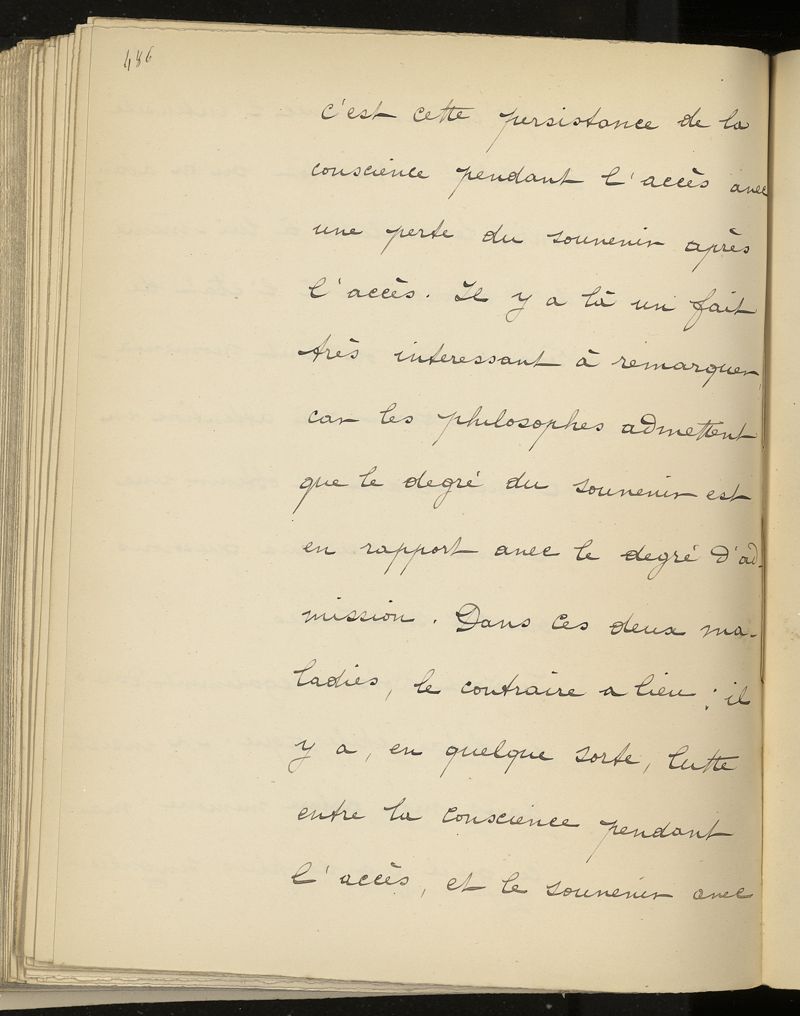 486
c'est cette persistance de la
conscience pendant l'accès avec
une perte du souvenir après
l'accès. Il y a là un fait
très interessant à remarquer,
car les philosophes admettent
que le degré du souvenir est
en rapport avec le degré d'ad-
mission. Dans ces deux ma-
ladies, le contraire a lieu : il
y a, en quelque sorte, lutte
entre la conscience pendant
l'accès, et le souvenir avec